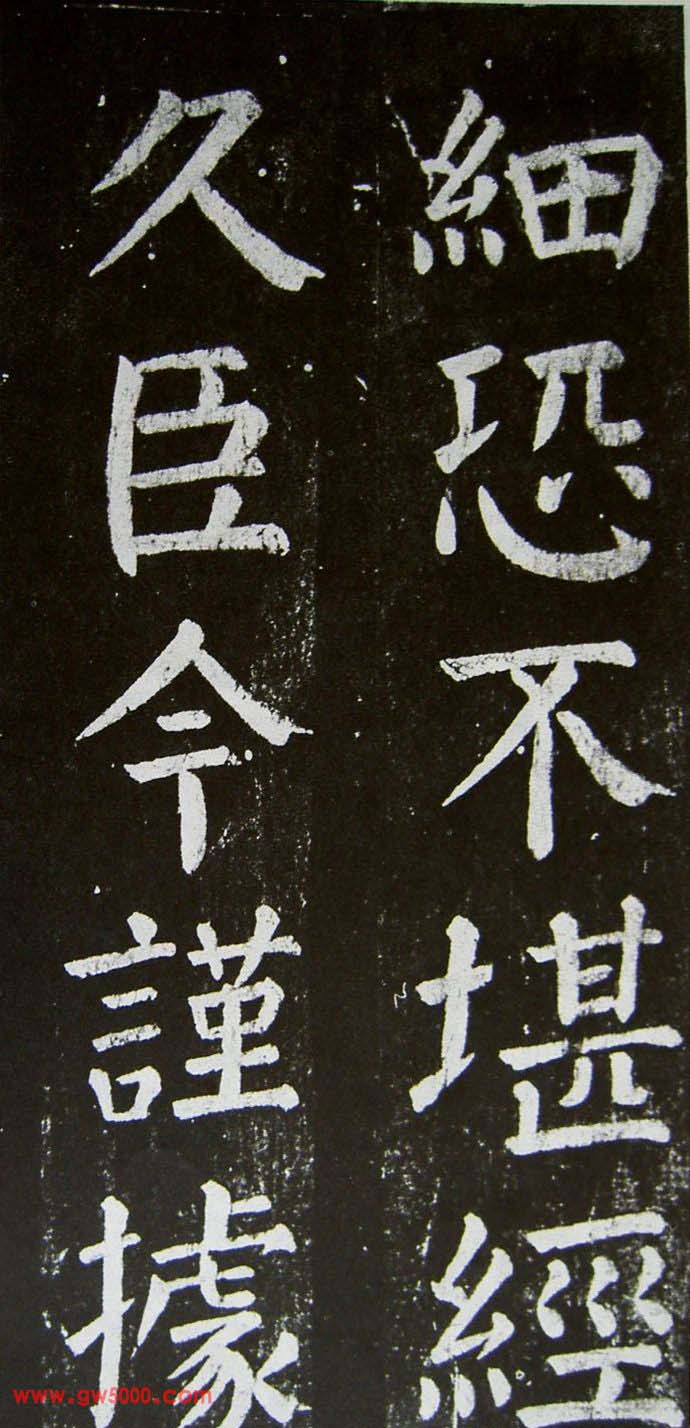 細恐不堪經
久臣今謹據
www.gw5000.com